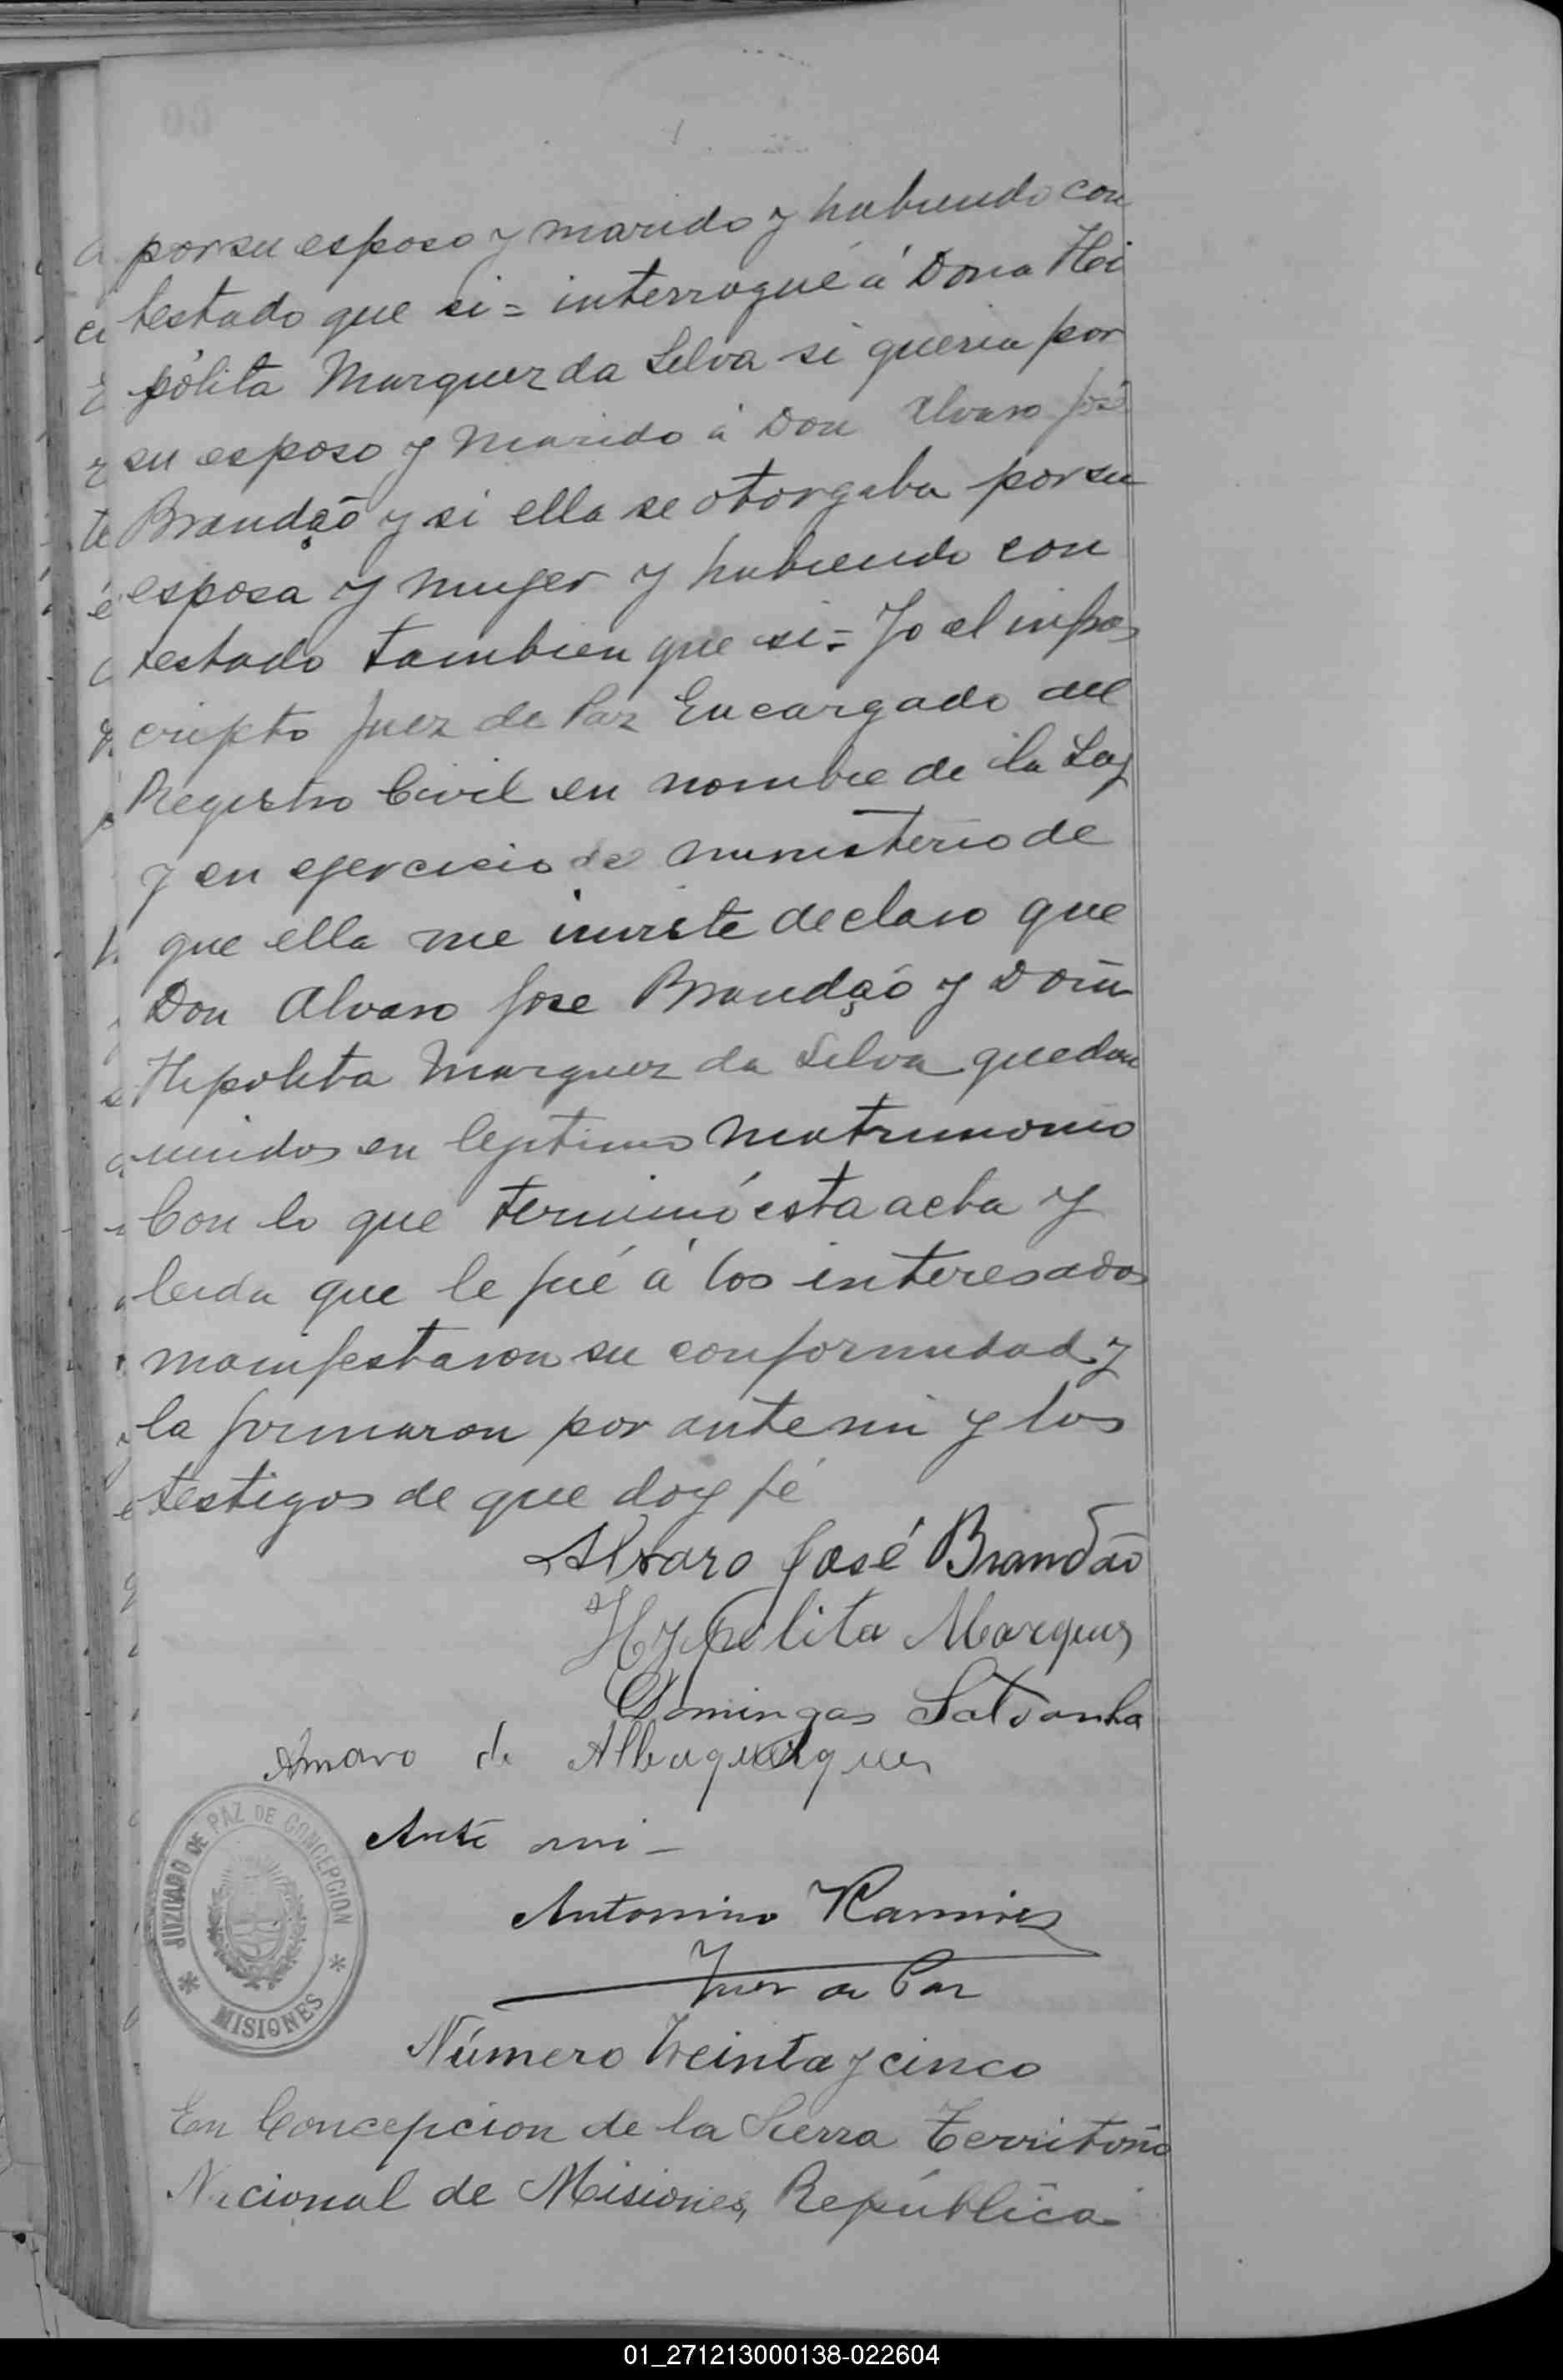 por su esposo y marido y habiendo con
testado que si = interrogué á Dona Hi
pólita Marquez da Silva si queria por
su esposo y marido á Don Alvaro José
Brandaõ y si ella se otorgaba por su
esposa y muger y habiendo con
testado tambien que si = Yo el infras
cripto Juez de Paz Encargado del
Registro Civil en nombre de la Ley
y en ejercicio del ministerio de
que ella me inviste declaro que
Don Alvaro Jose Brandaõ y Doña
Hipolita Marquez da Silva quedan
unidos en legitimo matrimonio
Con lo que terminó esta acta y
leida que le fué á los interesados
manifestaron su conformidad y
la firmaron por ante mi y los
testigos de que doy fé
Alvaro José Brandão
Hypolita Marques
Domingas Saldanha
Amaro de
Ante mi —
Antonino Ramirez
Juez de Paz
JUZGADO DE PAZ DE CONCEPCION
* MISIONES *
Número treinta y cinco
En Concepcion de la Sierra Territorio
Nacional de Misiones, República
01_271213000138-022604